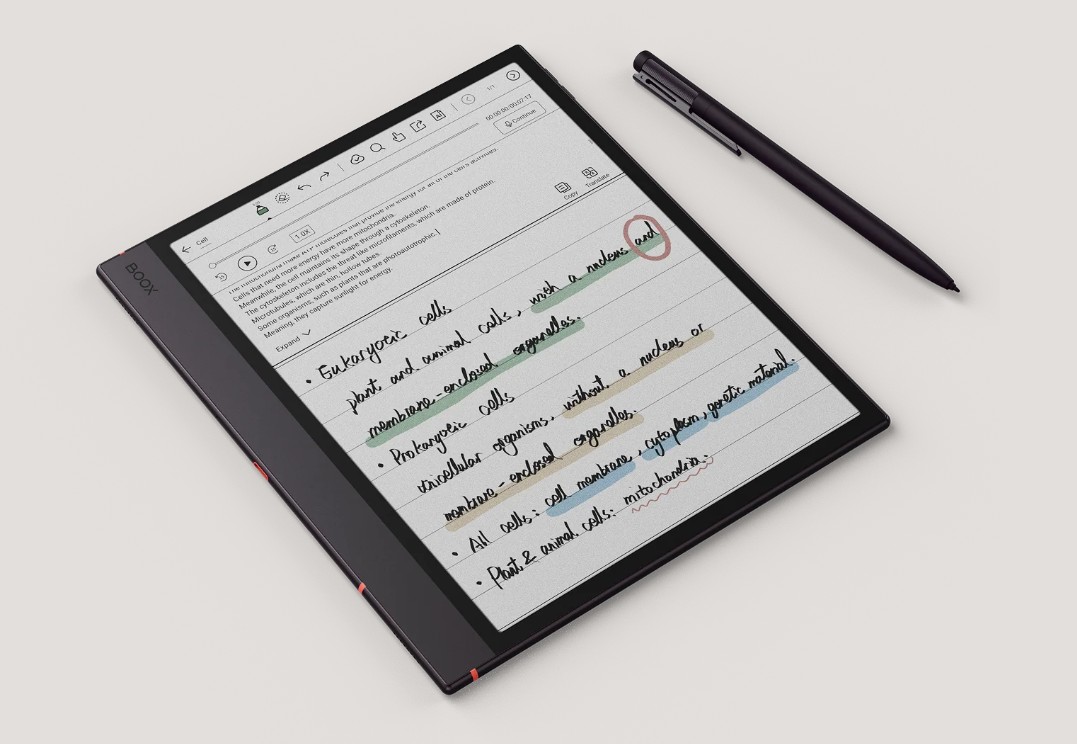 BOOX
Cell
00:00:00/00:07:17
Continue
1.0X
that provide the energy for all of the cell's
Cells that need more energy have more mitochondria.
Meanwhile, the cell maintains its shape through a cytoskeleton.
The cytoskeleton includes the threat like microfilaments, which are made of protein.
Microtubules, which are thin, hollow tubes.
Some organisms, such as plants that are photoautotrophic.
Meaning, they capture sunlight for energy.
Expand
Copy
Translate
• Eukaryotic cells
plant and animal cells, with a nucleus and
membrane-enclosed organelles.
• Prokaryotic cells
unicellular organisms, without a nucleus or
membrane-enclosed organelles.
• All cells: cell membrane, cytoplasm, genetic material.
• Plant & animal cells: mitochondria.